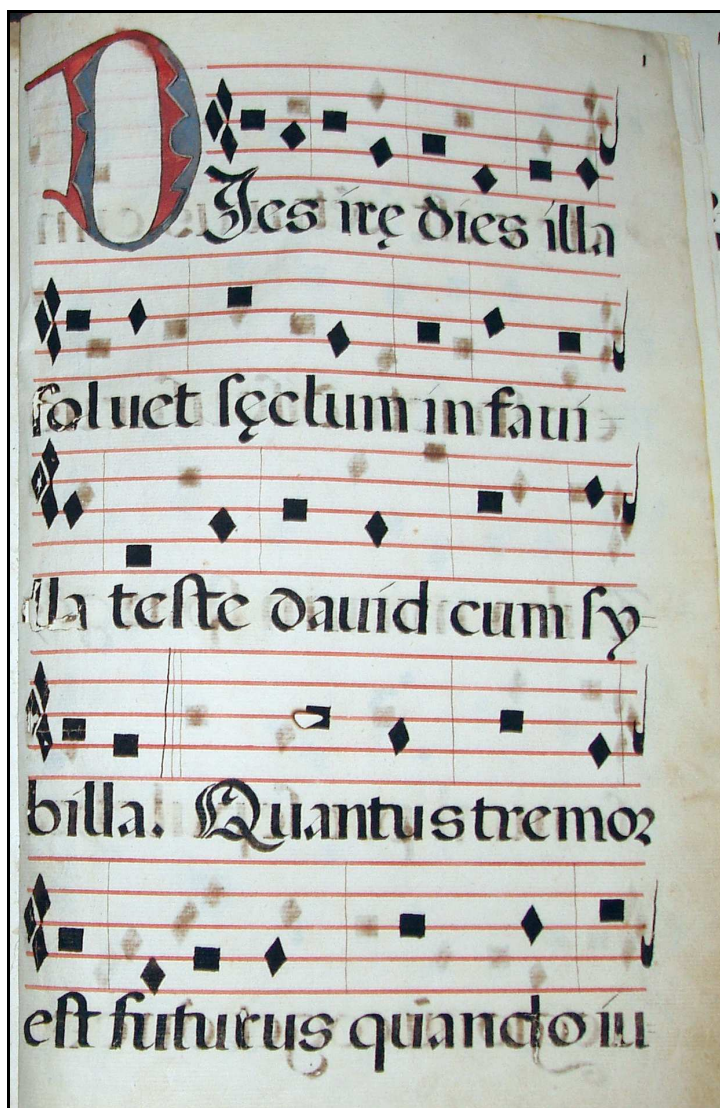 DIes irę dies illa
ſoluet ſęclum in faui
lla teſte dauid cum ſy
billa. Quantus tremoꝛ
eſt futurus quando iu